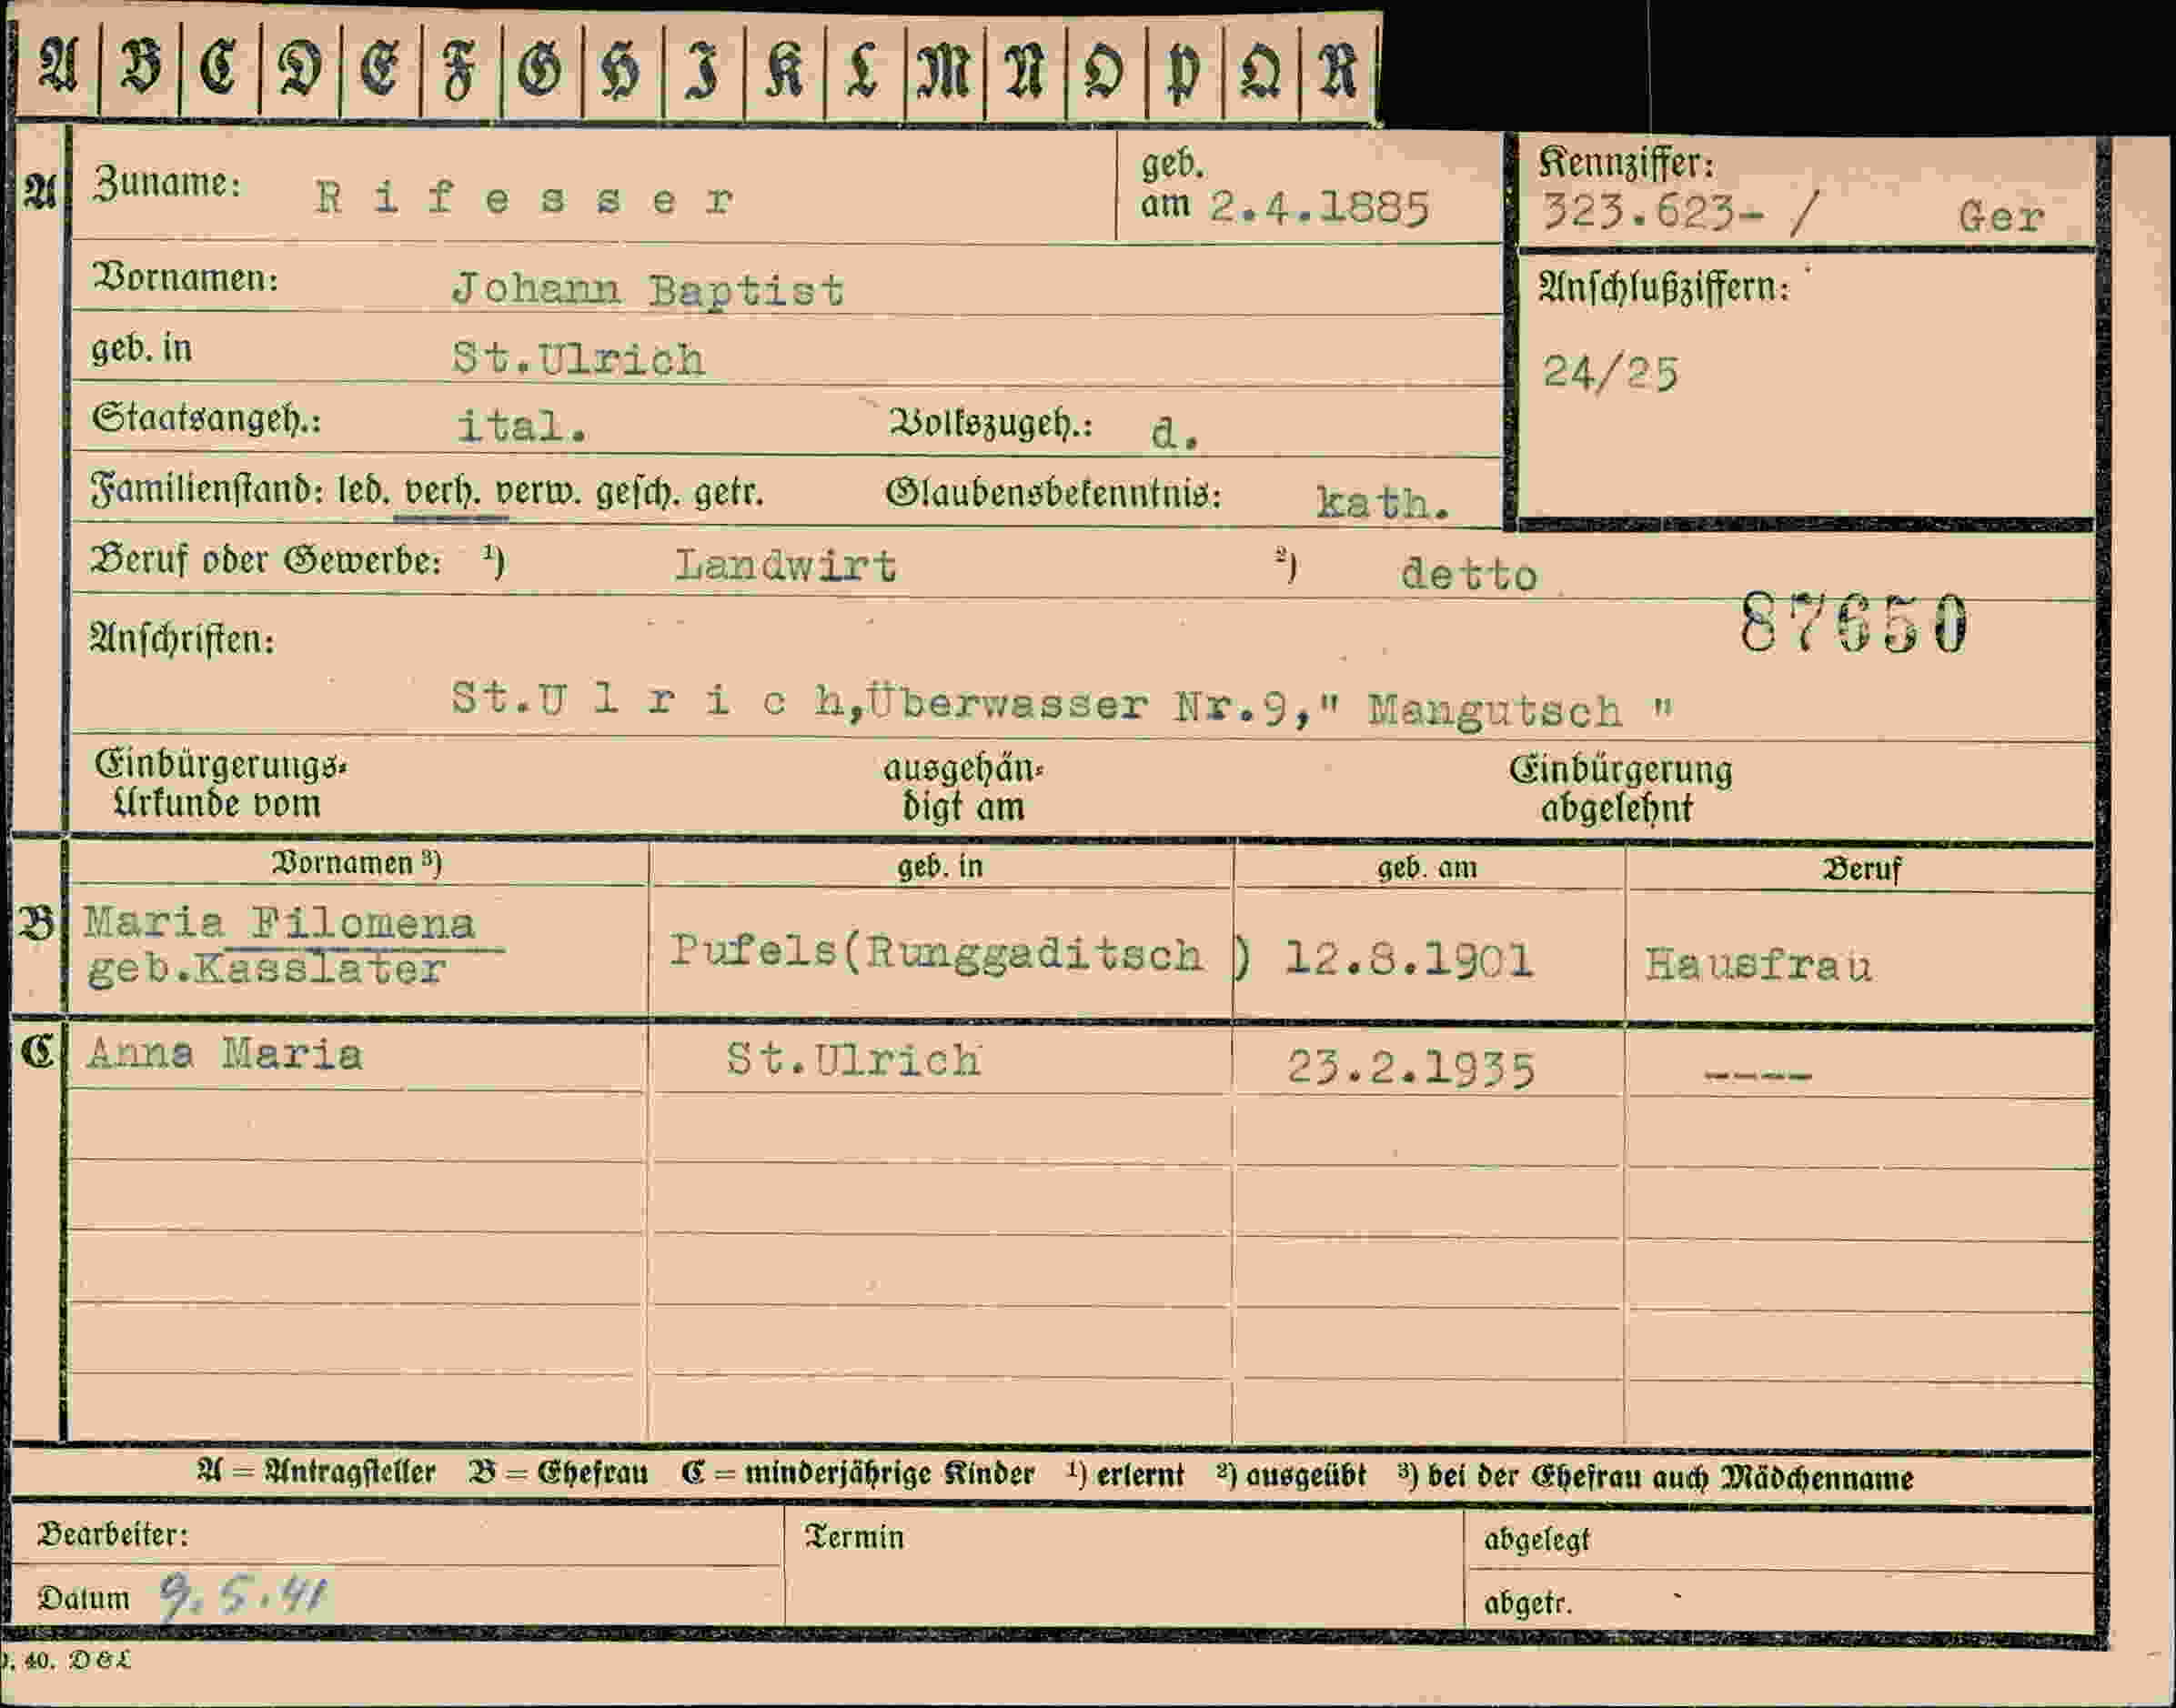 A B C D E F G H I K L M N O P Q R
A Zuname: Rifesser geb. am 2.4.1885 Kennziffer: 323.623- / Ger
Vornamen: Johann Baptist Anschlußziffern:
geb. in St.Ulrich 24/25
Staatsangeh.: ital. Volkszugeh.: d.
Familienstand: led. verh. verw. gesch. getr. Glaubensbekenntnis: kath.
Beruf oder Gewerbe: 1) Landwirt 2) detto
87650
Anschriften:
St.Ulrich,Überwasser Nr.9," Mangutsch "
Einbürgerungs- ausgehän- Einbürgerung
Urkunde vom digt am abgelehnt
Vornamen 3) geb. in geb. am Beruf
B Maria Filomena
geb.Kasslater Pufels(Runggaditsch ) 12.8.1901 Hausfrau
C Anna Maria St.Ulrich 23.2.1935 ----
A = Antragsteller B = Ehefrau C = minderjährige Kinder 1) erlernt 2) ausgeübt 3) bei der Ehefrau auch Mädchenname
Bearbeiter: Termin abgelegt
Datum 9.5.41 abgetr.
40. D&L